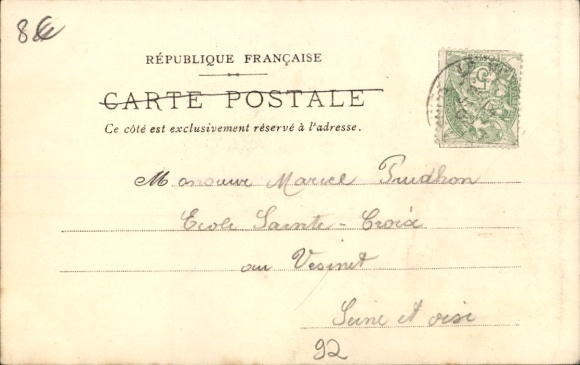 8€
RÉPUBLIQUE FRANÇAISE
CARTE POSTALE
Ce côté est exclusivement réservé à l'adresse.
Monsieur Marcel Prudhon
Ecole Sainte-Croix
au Vesinet
Seine et oise
92